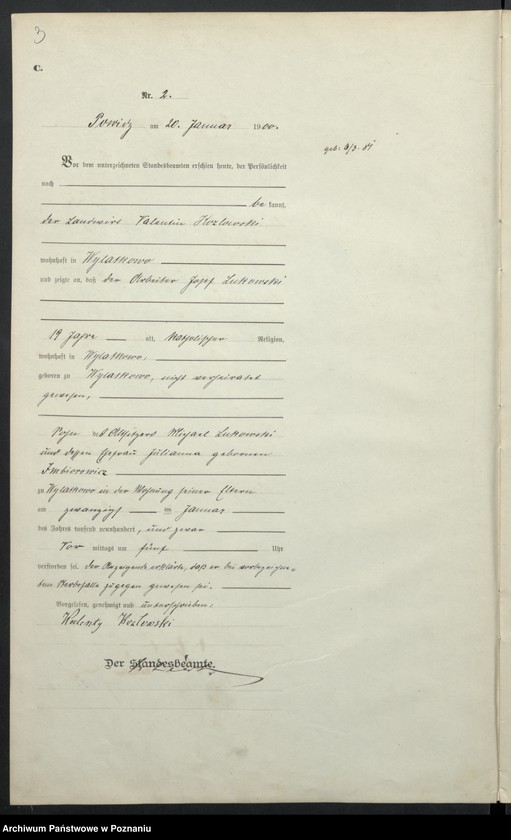 3
C.
Nr. 2.
Powidz am 20. Januar 1900.
geb. 6/3. 81
Vor dem unterzeichneten Standesbeamten erschien heute, der Persönlichkeit
nach
be kannt,
der Landwirt Valentin Kozlowski
wohnhaft in Wylatkowo
und zeigte an, daß der Arbeiter Josef Lukowski
19 Jahre alt, katholischer Religion,
wohnhaft in Wylatkowo,
geboren zu Wylatkowo, nicht verheiratet
gewesen,
Sohn des Altsitzers Michael Lukowski
und dessen Ehefrau Julianna geborenen
Imbierowicz
zu Wylatkowo in der Wohnung seiner Eltern
am zwanzigsten Januar
des Jahres tausend neunhundert, und zwar
Vor mittags um fünf Uhr
verstorben sei. Der Anzeigende erklärte, daß er bei vorbezeichne=
tem Sterbefalle zugegen gewesen sei.
Vorgelesen, genehmigt und unterschrieben:
Walenty Kozlowski
Der Standesbeamte.
Archiwum Państwowe w Poznaniu